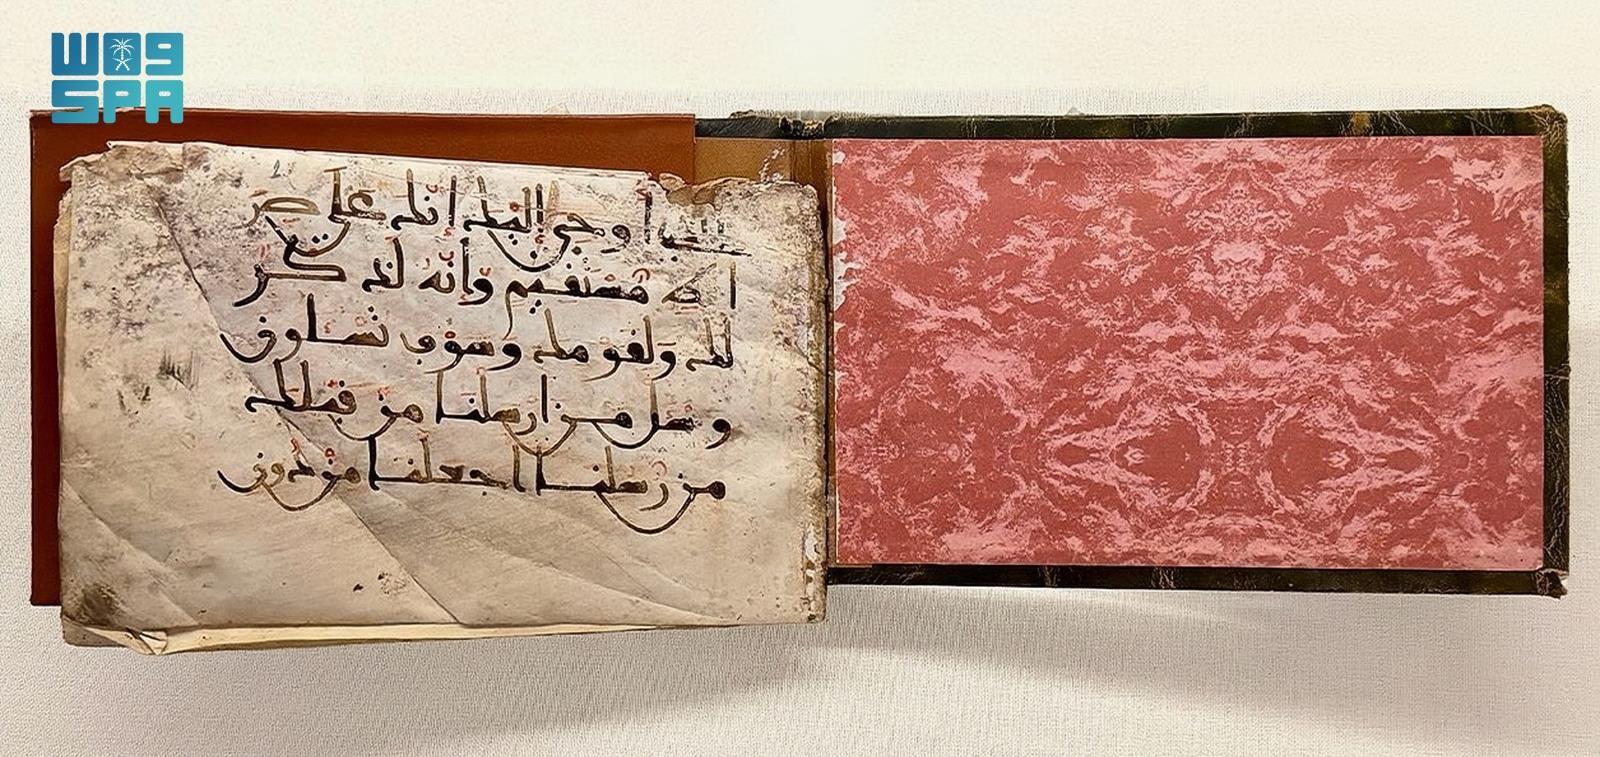 واس
SPA
أوحي إليك إنك على صر
ا ط مُسْتَقيم وَإِنَّهُ لَذكر
لك وَلقومك وسوف تسئلون
وسل من ارسلنا من قبلك
من رُسلنا اجعلنا من دون